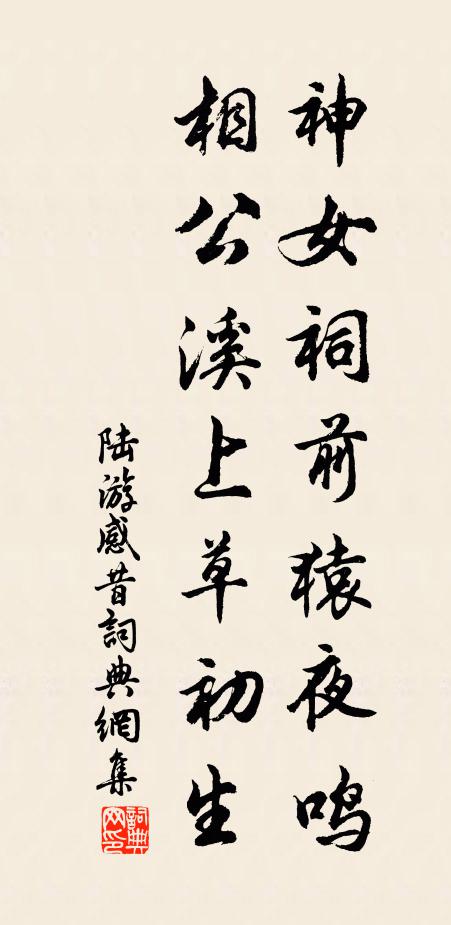 神女祠前猿夜鸣
相公溪上草初生
陆游感昔詞典網集
詞典網印